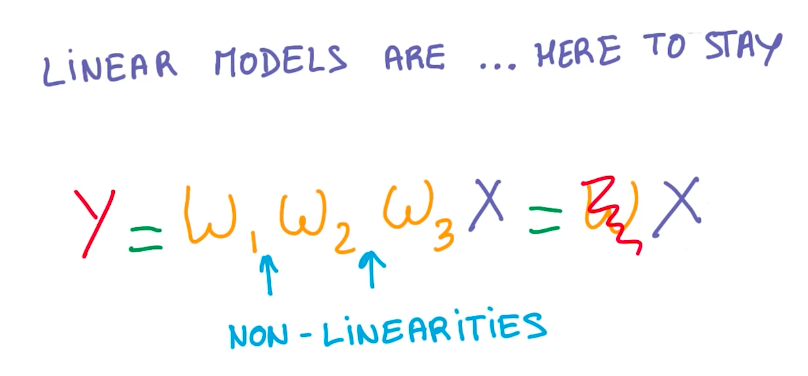 LiNEAR MODELS ARE ... HERE TO STAY
Y = W₁ W₂ W₃ X = W X
NON-LiNEARiTiES